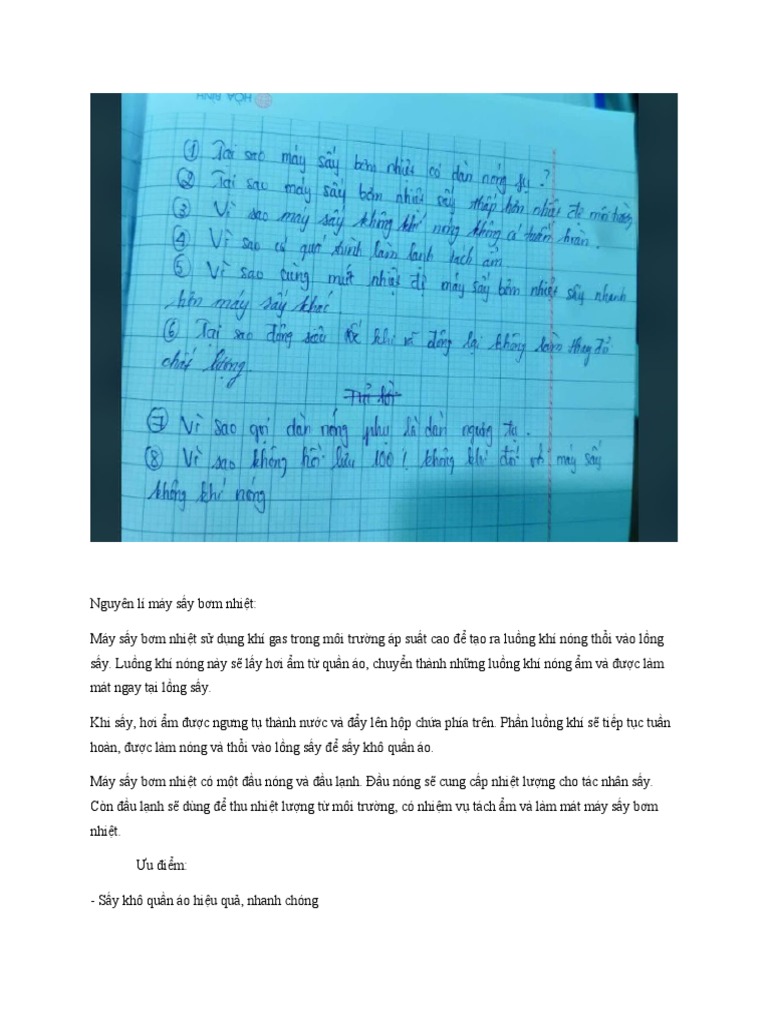 HÒA BÌNH
① Tại sao máy sấy bơm nhiệt có dàn nóng fụ ?
② Tại sao máy sấy bơm nhiệt sấy thấp hơn nhiệt độ môi trường
③ Vì sao máy sấy không khí nóng không có tuần hoàn.
④ Vì sao có quá trình làm lạnh tách ẩm
⑤ Vì sao cùng một nhiệt độ máy sấy bơm nhiệt sấy nhanh
hơn máy sấy khác.
⑥ Tại sao đông sâu khi rã đông lại không làm thay đổi
chất lượng.
Trả lời
⑦ Vì sao gọi dàn nóng phụ là dàn ngưng tụ.
⑧ Vì sao không hồi lưu 100% không khí đối với máy sấy
không khí nóng
Nguyên lí máy sấy bơm nhiệt:
Máy sấy bơm nhiệt sử dụng khí gas trong môi trường áp suất cao để tạo ra luồng khí nóng thổi vào lồng
sấy. Luồng khí nóng này sẽ lấy hơi ẩm từ quần áo, chuyển thành những luồng khí nóng ẩm và được làm
mát ngay tại lồng sấy.
Khi sấy, hơi ẩm được ngưng tụ thành nước và đẩy lên hộp chứa phía trên. Phần luồng khí sẽ tiếp tục tuần
hoàn, được làm nóng và thổi vào lồng sấy để sấy khô quần áo.
Máy sấy bơm nhiệt có một đầu nóng và đầu lạnh. Đầu nóng sẽ cung cấp nhiệt lượng cho tác nhân sấy.
Còn đầu lạnh sẽ dùng để thu nhiệt lượng từ môi trường, có nhiệm vụ tách ẩm và làm mát máy sấy bơm
nhiệt.
Ưu điểm:
- Sấy khô quần áo hiệu quả, nhanh chóng